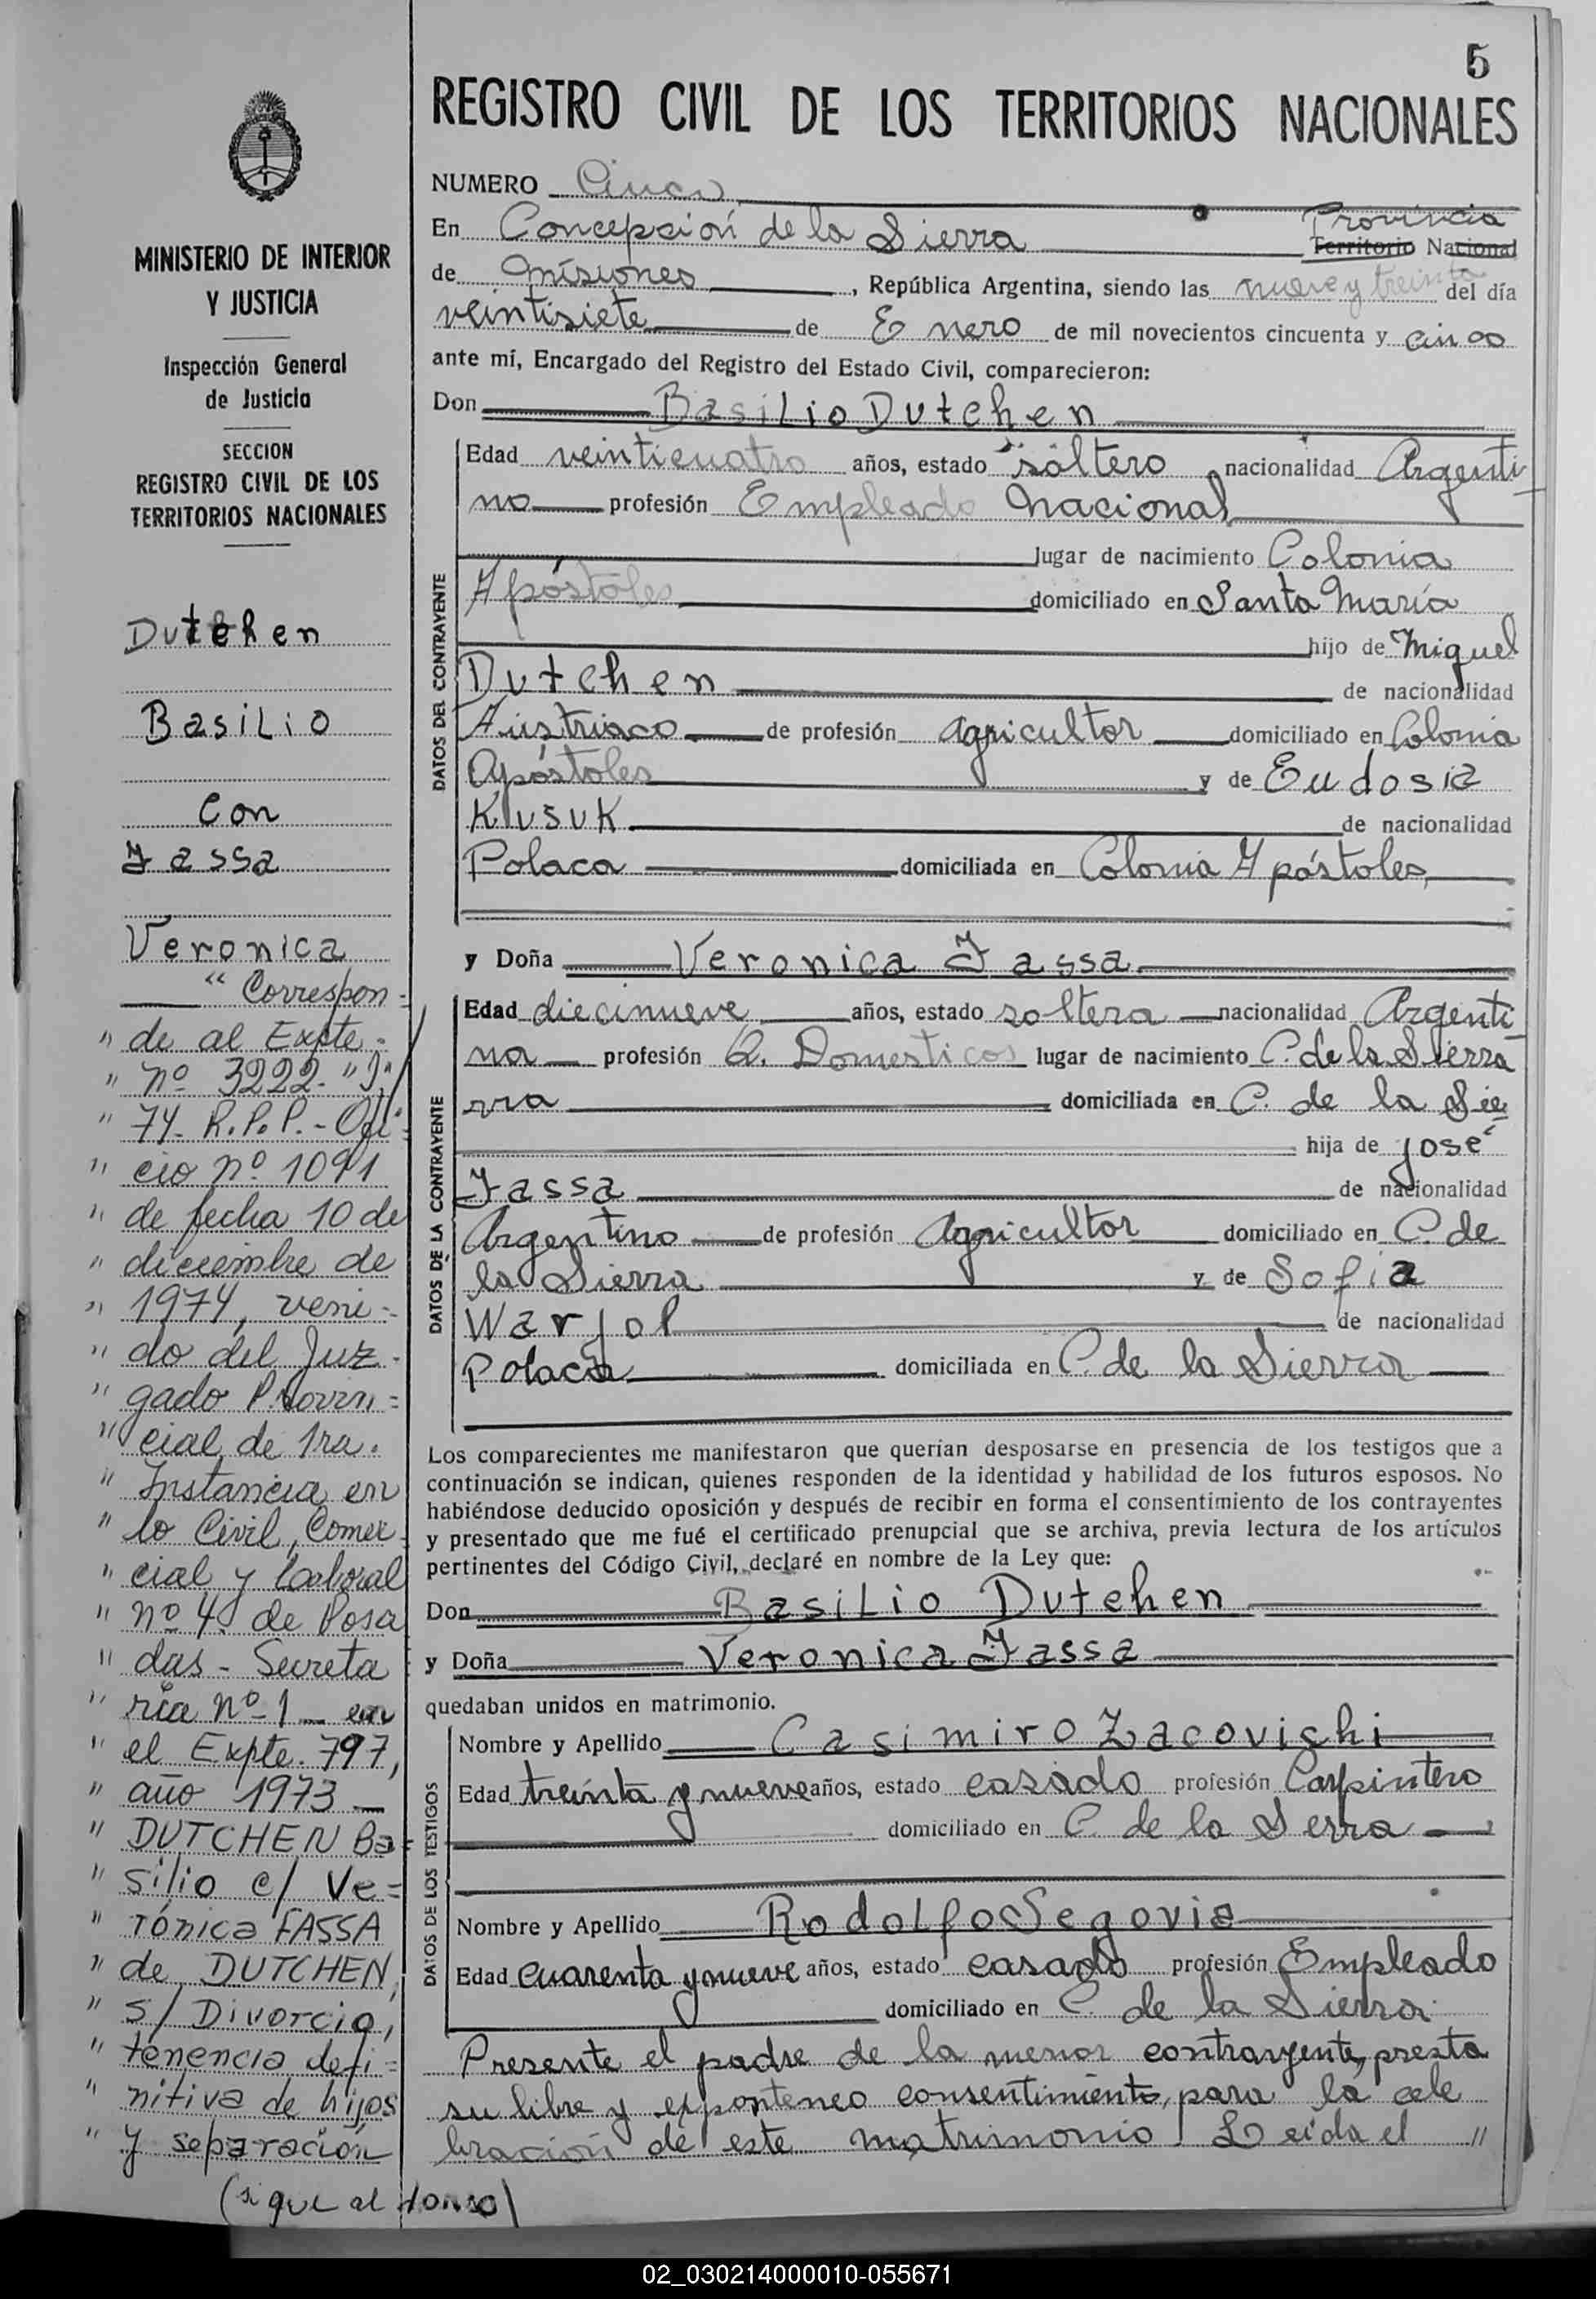 5
REGISTRO CIVIL DE LOS TERRITORIOS NACIONALES
MINISTERIO DE INTERIOR
Y JUSTICIA
Inspección General
de Justicia
SECCION
REGISTRO CIVIL DE LOS
TERRITORIOS NACIONALES
Dutchen
Basilio
Con
Fassa
Veronica
" Correspon=
" de al Expte.
" nº 3222-"D"/
" 74- R.P.P.- Ofi=
" cio nº 1091
" de fecha 10 de
" diciembre de
" 1974, veni=
" do del Juz-
" gado Provin=
" cial de 1ra.
" Instancia en
" lo Civil, Comer-
" cial y Laboral
" nº 4 de Posa
" das - Secreta
" ría nº 1 - en
" el Expte. 797,
" año 1973 -
" DUTCHEN Ba=
" silio c/ Ve=
" rónica FASSA
" de DUTCHEN,
" s/ Divorcio,
" tenencia defi=
" nitiva de hijos
" y separación
(sigue al dorso)
NUMERO Cinco
En Concepción de la Sierra Provincia Territorio Nacional
de Misiones, República Argentina, siendo las nueve y treinta del día
veintisiete de Enero de mil novecientos cincuenta y cinco
ante mí, Encargado del Registro del Estado Civil, comparecieron:
Don Basilio Dutchen
DATOS DEL CONTRAYENTE
Edad veinticuatro años, estado soltero nacionalidad Argenti
no profesión Empleado Nacional
lugar de nacimiento Colonia
Apóstoles domiciliado en Santa María
hijo de Miguel
Dutchen de nacionalidad
Austriaco de profesión agricultor domiciliado en Colonia
Apóstoles y de Eudosia
Kusuk de nacionalidad
Polaca domiciliada en Colonia Apóstoles
y Doña Veronica Fassa
DATOS DE LA CONTRAYENTE
Edad diecinueve años, estado soltera nacionalidad Argenti
na profesión Q. Domesticos lugar de nacimiento C. de la Sierra
rra domiciliada en C. de la Sie
hija de José
Fassa de nacionalidad
Argentino de profesión Agricultor domiciliado en C. de
la Sierra y de Sofia
Warjol de nacionalidad
Polaca domiciliada en C. de la Sierra
Los comparecientes me manifestaron que querían desposarse en presencia de los testigos que a
continuación se indican, quienes responden de la identidad y habilidad de los futuros esposos. No
habiéndose deducido oposición y después de recibir en forma el consentimiento de los contrayentes
y presentado que me fué el certificado prenupcial que se archiva, previa lectura de los artículos
pertinentes del Código Civil, declaré en nombre de la Ley que:
Don Basilio Dutchen
y Doña Veronica Fassa
quedaban unidos en matrimonio.
DATOS DE LOS TESTIGOS
Nombre y Apellido Casimiro Zacovichi
Edad treinta y nueve años, estado casado profesión Carpintero
domiciliado en C. de la Serra
Nombre y Apellido Rodolfo Segovia
Edad cuarenta y nueve años, estado casado profesión Empleado
domiciliado en C. de la Sierra
Presente el padre de la menor contrayente, presta
su libre y exponteneo consentimiento, para la cele
bración de este matrimonio. Leída el "
02_030214000010-055671